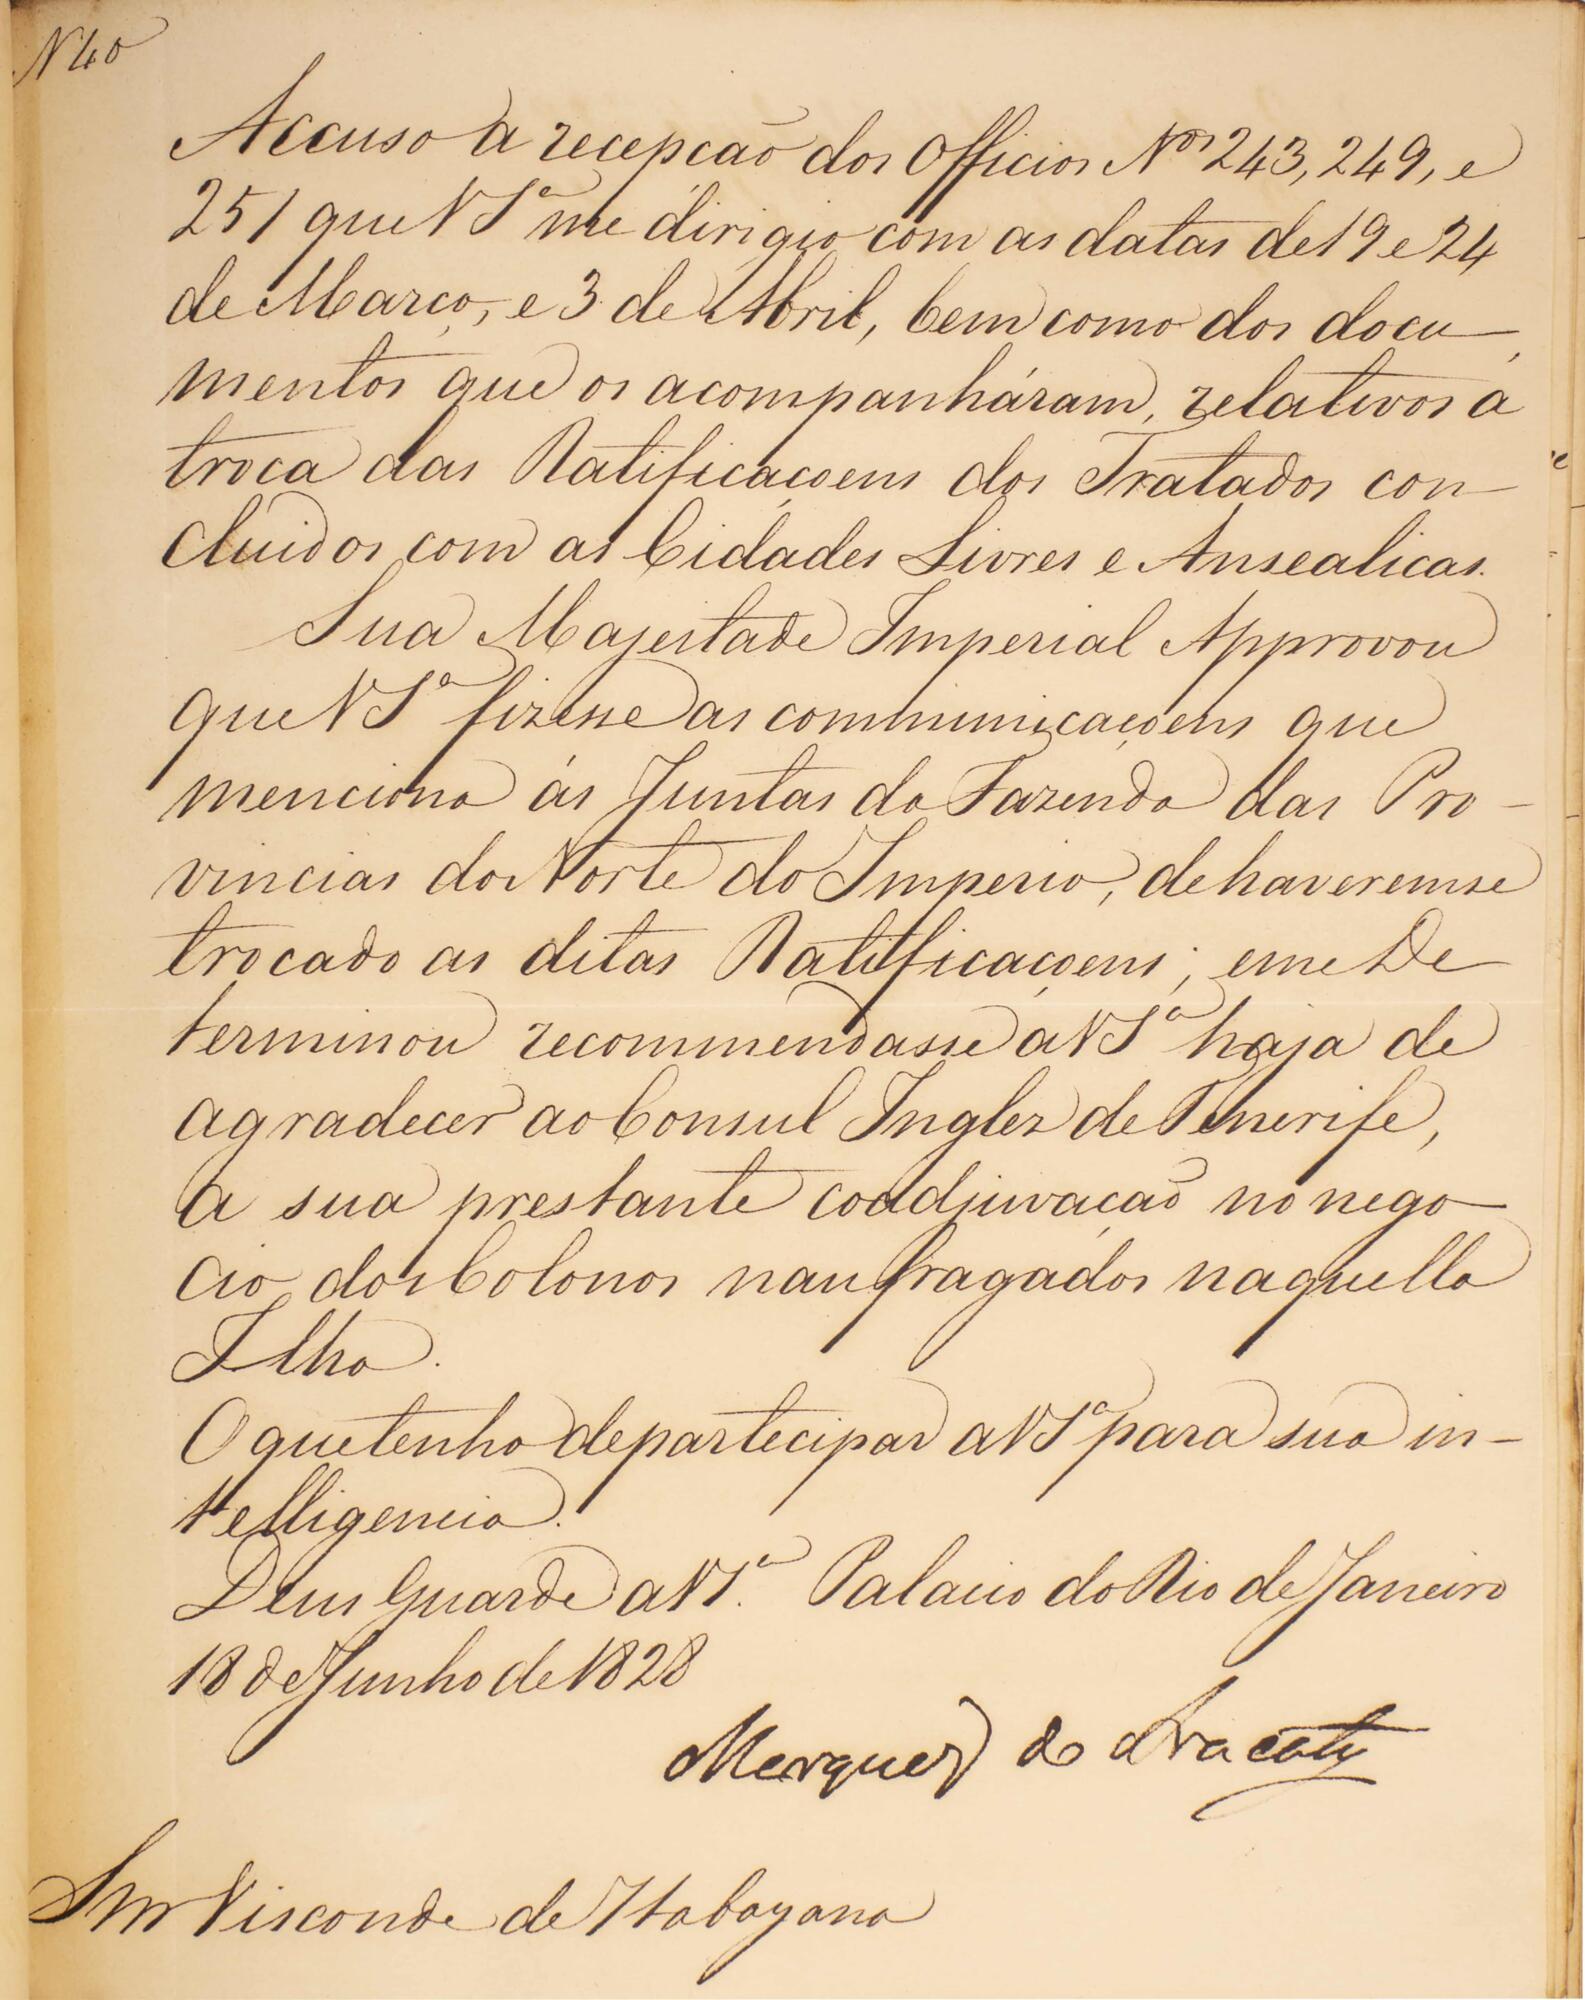 N 40
Accuso a recepcão dos Officios Nos 243, 249, e
251 que V Sa me dirigio com as datas de 19 e 24
de Março, e 3 de Abril, bem como dos docu-
mentos que os acompanháram, relativos á
troca das Ratificaçoens dos Tratados con-
cluidos com as Cidades Livres e Anseaticas.
Sua Majestade Imperial Approvou
que V Sa fizesse as communicaçoens que
menciona ás Juntas da Fazenda das Pro-
vincias do Norte do Imperio, de haveremse
trocado as ditas Ratificaçoens; e me De
terminou recommendasse a V Sa haja de
agradecer ao Consul Inglez de Tenerife,
a sua prestante coadjuvação no nego-
cio dos Colonos naufragados naquella
Ilha.
O que tenho de partecipar a V Sa para sua in-
telligencia.
Deus Guarde a V Sa. Palacio do Rio de Janeiro
18 de Junho de 1828
Marquez do Aracaty
Snr Visconde de Itabayana